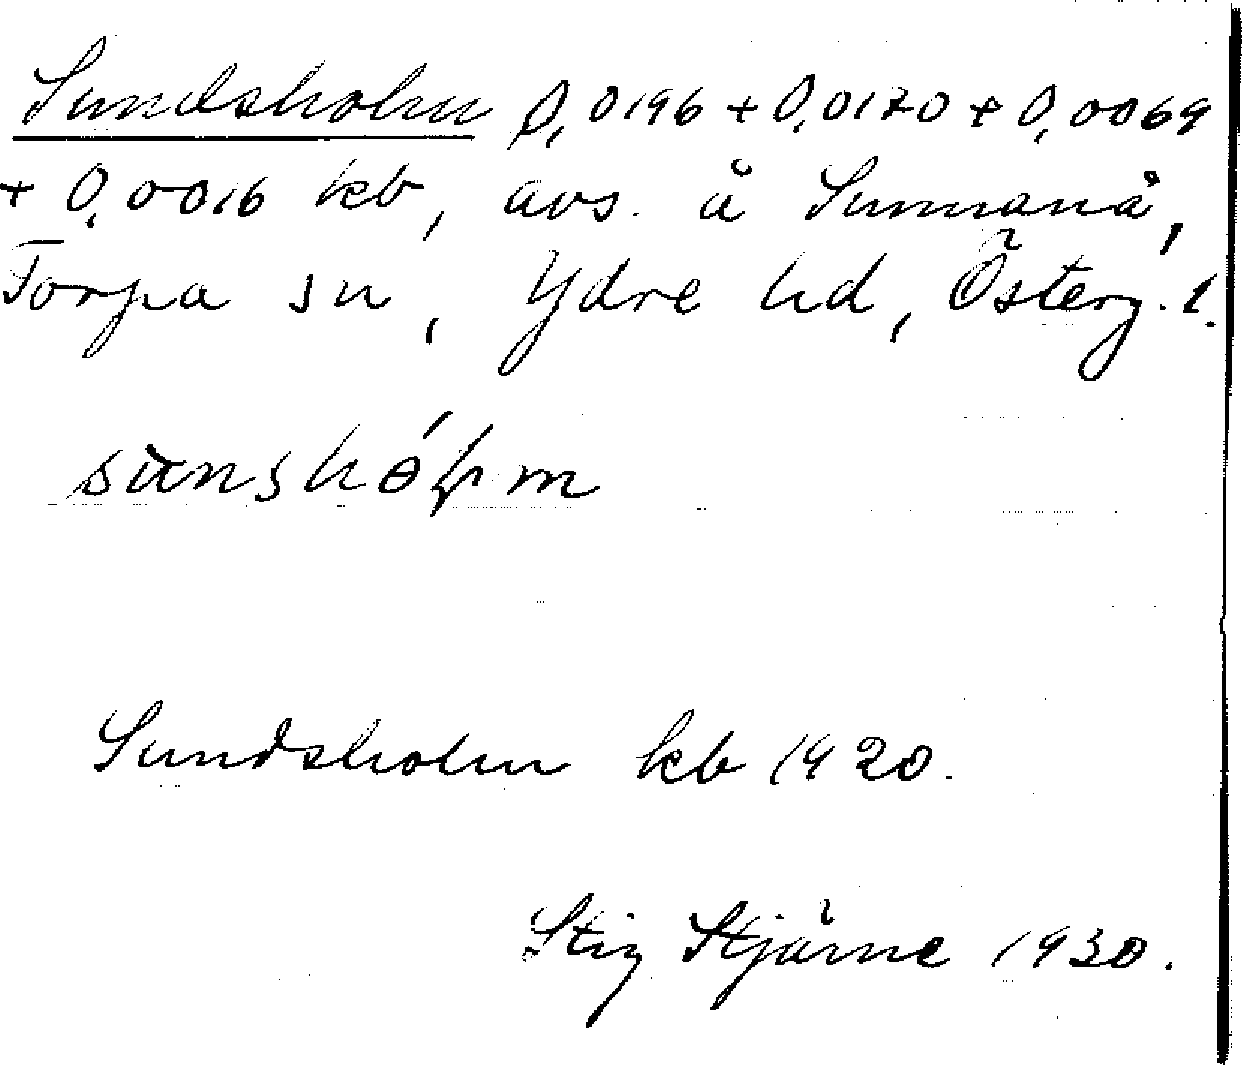 Sundsholm 0,0196 + 0,0170 + 0,0069
+ 0,0016 kb, avs. å Sunnanå,
Torpa sn, Ydre hd, Österg. l.
Sundsholm kb 1920.
Stig Stjärne 1930.